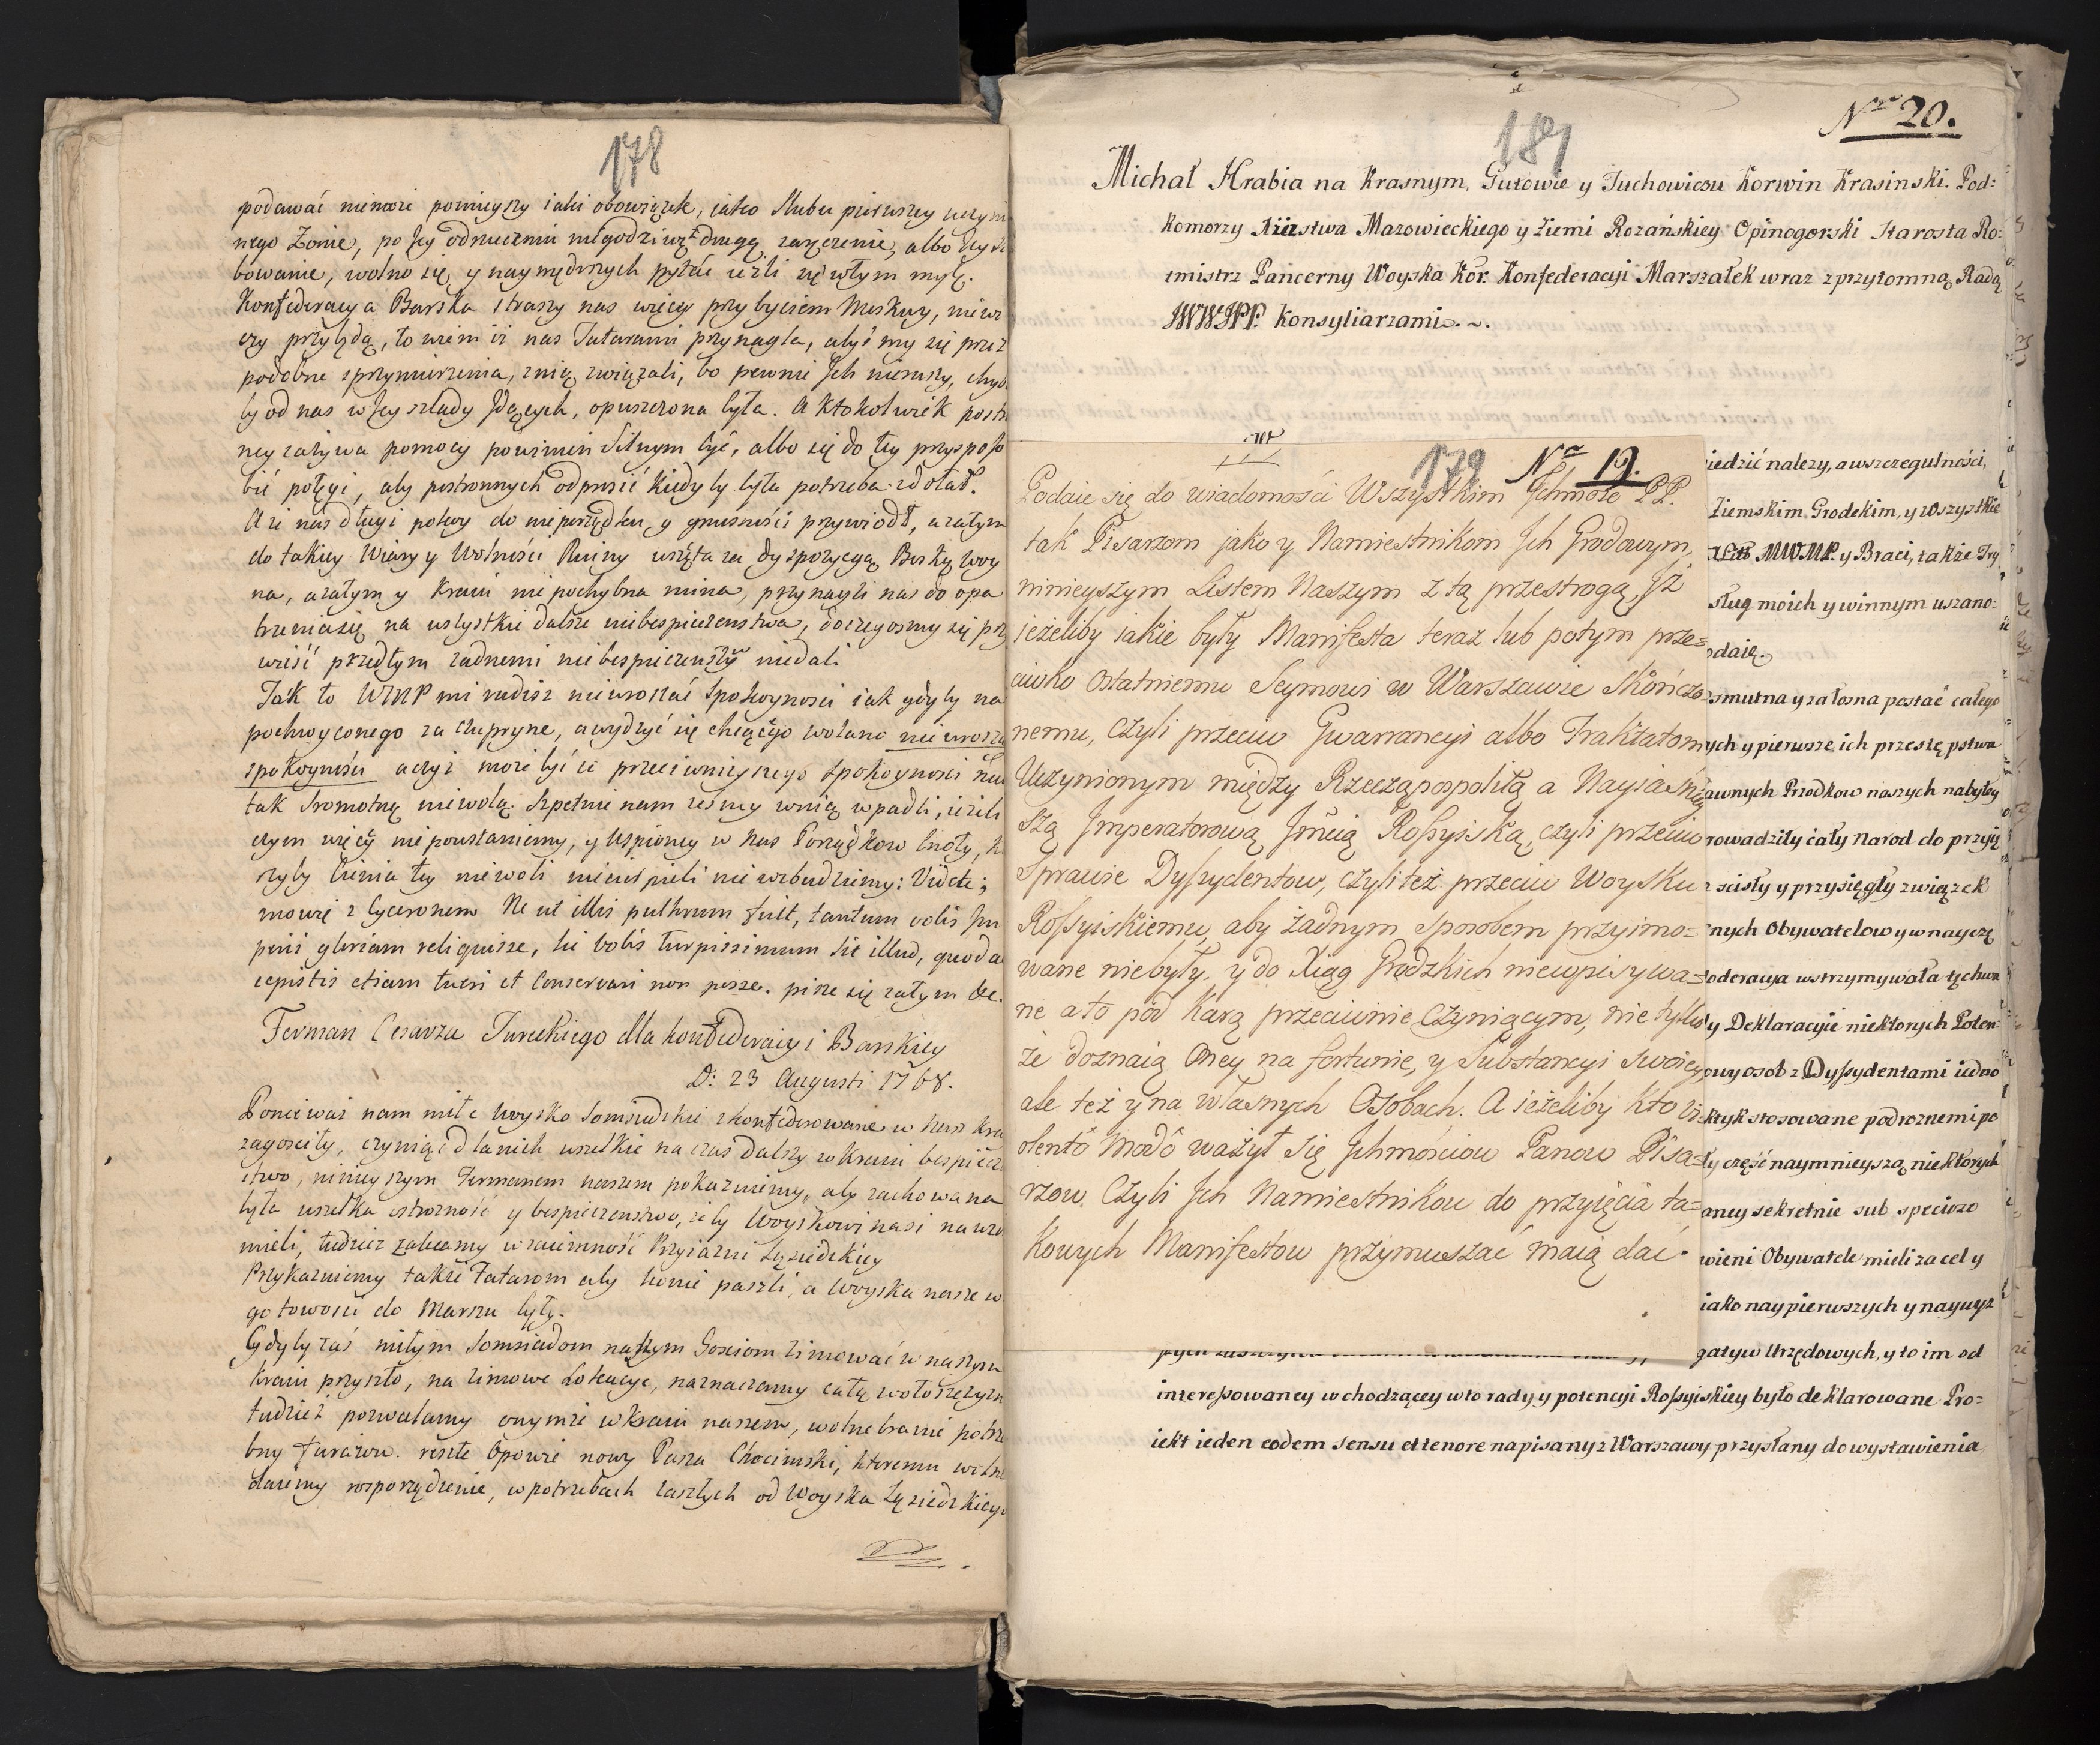 178
podawać niemoże pomnieyszy iaki obowiązek, iako Slubu pierwszey uczyni
nego Zonie, po Jey odrzuceniu niegodziwą drugą zaręczenie, albo
bowanie, wolno się y naymędrszych pytać ieżli się wtym mylę.
Konfederacya Barska straszy nas więcey przybyciem Moskwy, niewi
czy przyiydą, to wiem iż nas Tatarami przynagla, abyśmy się przez
podobne sprzymierzenia, znią związali, bo pewnie Jch nieruszy, chyb
by od nas w Jey szlady Jdących, opuszczona była. A Ktokolwiek postr
ney zażywa pomocy powinien Silnym być, albo się do tey przysposo
bić potęgi, aby postronnych odprosić kiedy by była potrzeba zdołał.
A że nas długi pokoy do nieporządku y gnusności przywiodł, a zatym
do takiey Wiary y Wolności Ruiny wzięta za dyspozycyą Boską woy
na, a zatym y Kraiu niepochybna ruina, przynagli nas do opa
trzenia się na wszystkie dalsze niebespieczenstwa, do czegosmy się prz
wieść przedtym żadnemi niebespieczenstwy niedali
Jak to WMP mi radzisz niewzroszać Spokoyności iak gdyby na
pochwyconego za czuprynę, a wydrzyć się chcącego wolano nie wzrosza
spokoyności a czyż może być co przeciwnieyszego spokoyności
tak sromotną niewolą. Szpetnie nam żeśmy wnią wpadli, ieżeli
czym więcy niepowstaniemy, y Uspioney w nas Porządkow cnoty,
żyby Cienia tey niewoli niecierpieli nie wzbudziemy: Videte;
mowię z Cyceronem Ne ut illis pulhrum fuit, tantum vobis Im
perii gloriam reliquisse, sic vobis turpissimum sit illud, quod ac
cepistis etiam tueri et Conservari non posse. pisze się zatym &c.
Ferman Cesarza Tureckiego dla konfederacyi Barskiey
D: 23 Augusti 1768.
Ponieważ nam miłe woysko Somsiedzkie skonfederowane w kray
zagosciły, czyniąc dlanich wszelkie na czas dalszy w kraiu bespiecze
stwo, ninieyszym Fermanem naszem pokazuiemy, aby zachowana
była wszelka ostrożność y bespieczenstwo, żeby Woyskowi nasi na wzg
mieli, tudzież zalecamy wzaiemność Przyiaźni Sąsiedzkiey
Przykazuiemy także Tatarom aby konie paszli, a Woyska nasze w
gotowosci do Marszu były.
Gdyby zaś miłym Somsiadom naszym Gosciom zimować w naszym
Kraiu przyszło, na zimowe Lokacye, naznaczamy całą wołoszczyzn
tudzież pozwalamy onymże w kraiu naszem, wolne branie potrze
bny furażu. reszte Opowie nowy Pasza Chocimski, ktoremu wolne
daiemy rosporządzenie, w potrzebach zaszłych od Woyska Sąsiedzkiego
Nro 20.
181
Michał Hrabia na Krasnym, Gutowie y Suchowicsu Korwin Krasinski. Pod:
komorzy Xięstwa Mazowieckiego y Ziemi Rożańskiey Opinogorski Starosta Ro:
tmistrz Pancerny Woyska Kor. Konfederacyi Marszałek wraz z przytomną Radą
JWWJPP. Konsyliarzami.
179 Nro 19.
Podaie się do wiadomości Wszystkim Jchmośc PP.
tak Pisarzom jako y Namiestnikom Jch Grodowym,
ninieyszym Listem Naszym z tą przestrogą, Jż
jeżeliby jakie były Manifesta teraz lub potym prze=
ciwko Ostatniemu Seymowi w Warszawie Skończo=
nemu, Czyli przeciw Gwarrancyi albo Traktatom
Uczynionym między Rzecząpospolitą a Nayiaśniey
szą Jmperatorową Jmcią Rossyiską, czyli przeciw
Sprawie Dyssydentow, czyli też przeciw Woysku
Rossyiskiemu, aby żadnym Sposobem przyimo=
wane niebyły. y do Xiąg Grodzkich niewpisywa=
ne a to pod Karą przeciwnie Czyniącym, nie tylko
że doznaią Oney na fortunie, y Substancyi Swoiey,
ale też y na własnych Osobach. A ieżeliby kto Vi
olento Modo ważył się Jchmościow Panow Pisa=
rzow Czyli Jch Namiestnikow do przyięcia ta=
kowych Manifestow przymuszać maią dać.
iedzić nalezy, a wszczegulności,
Ziemskim Grodzkim, y wszystkie
MWMP. y Braci, także Try
sług moich y winnym uszano:
odaię.
smutna y załosna postać całego
ych y pierwsze ich przestępstwa
awnych Przodkow naszych nabytey
rowadziły cały Narod do przyię
scisły y przysięgły związek
nych Obywatelow y w naycze
oderacya wstrzymywała tę chwa
y Deklaracyie niektorych Poten:
owy osob z Dyssydentami iedno
ktyk stosowane pod roznemi po
ły część naymnieyszą niektorych
aney sekretnie sub specioso
wieni Obywatele mieli za cel y
iako naypierwszych y naywyż
gatyw Urzędowych, y to im od
interessowaney wchodzącey w to rady y potencyi Rossyiskiey było deklarowane Pro=
iekt ieden eodem sensu et tenore napisany z Warszawy przysłany do wystawienia